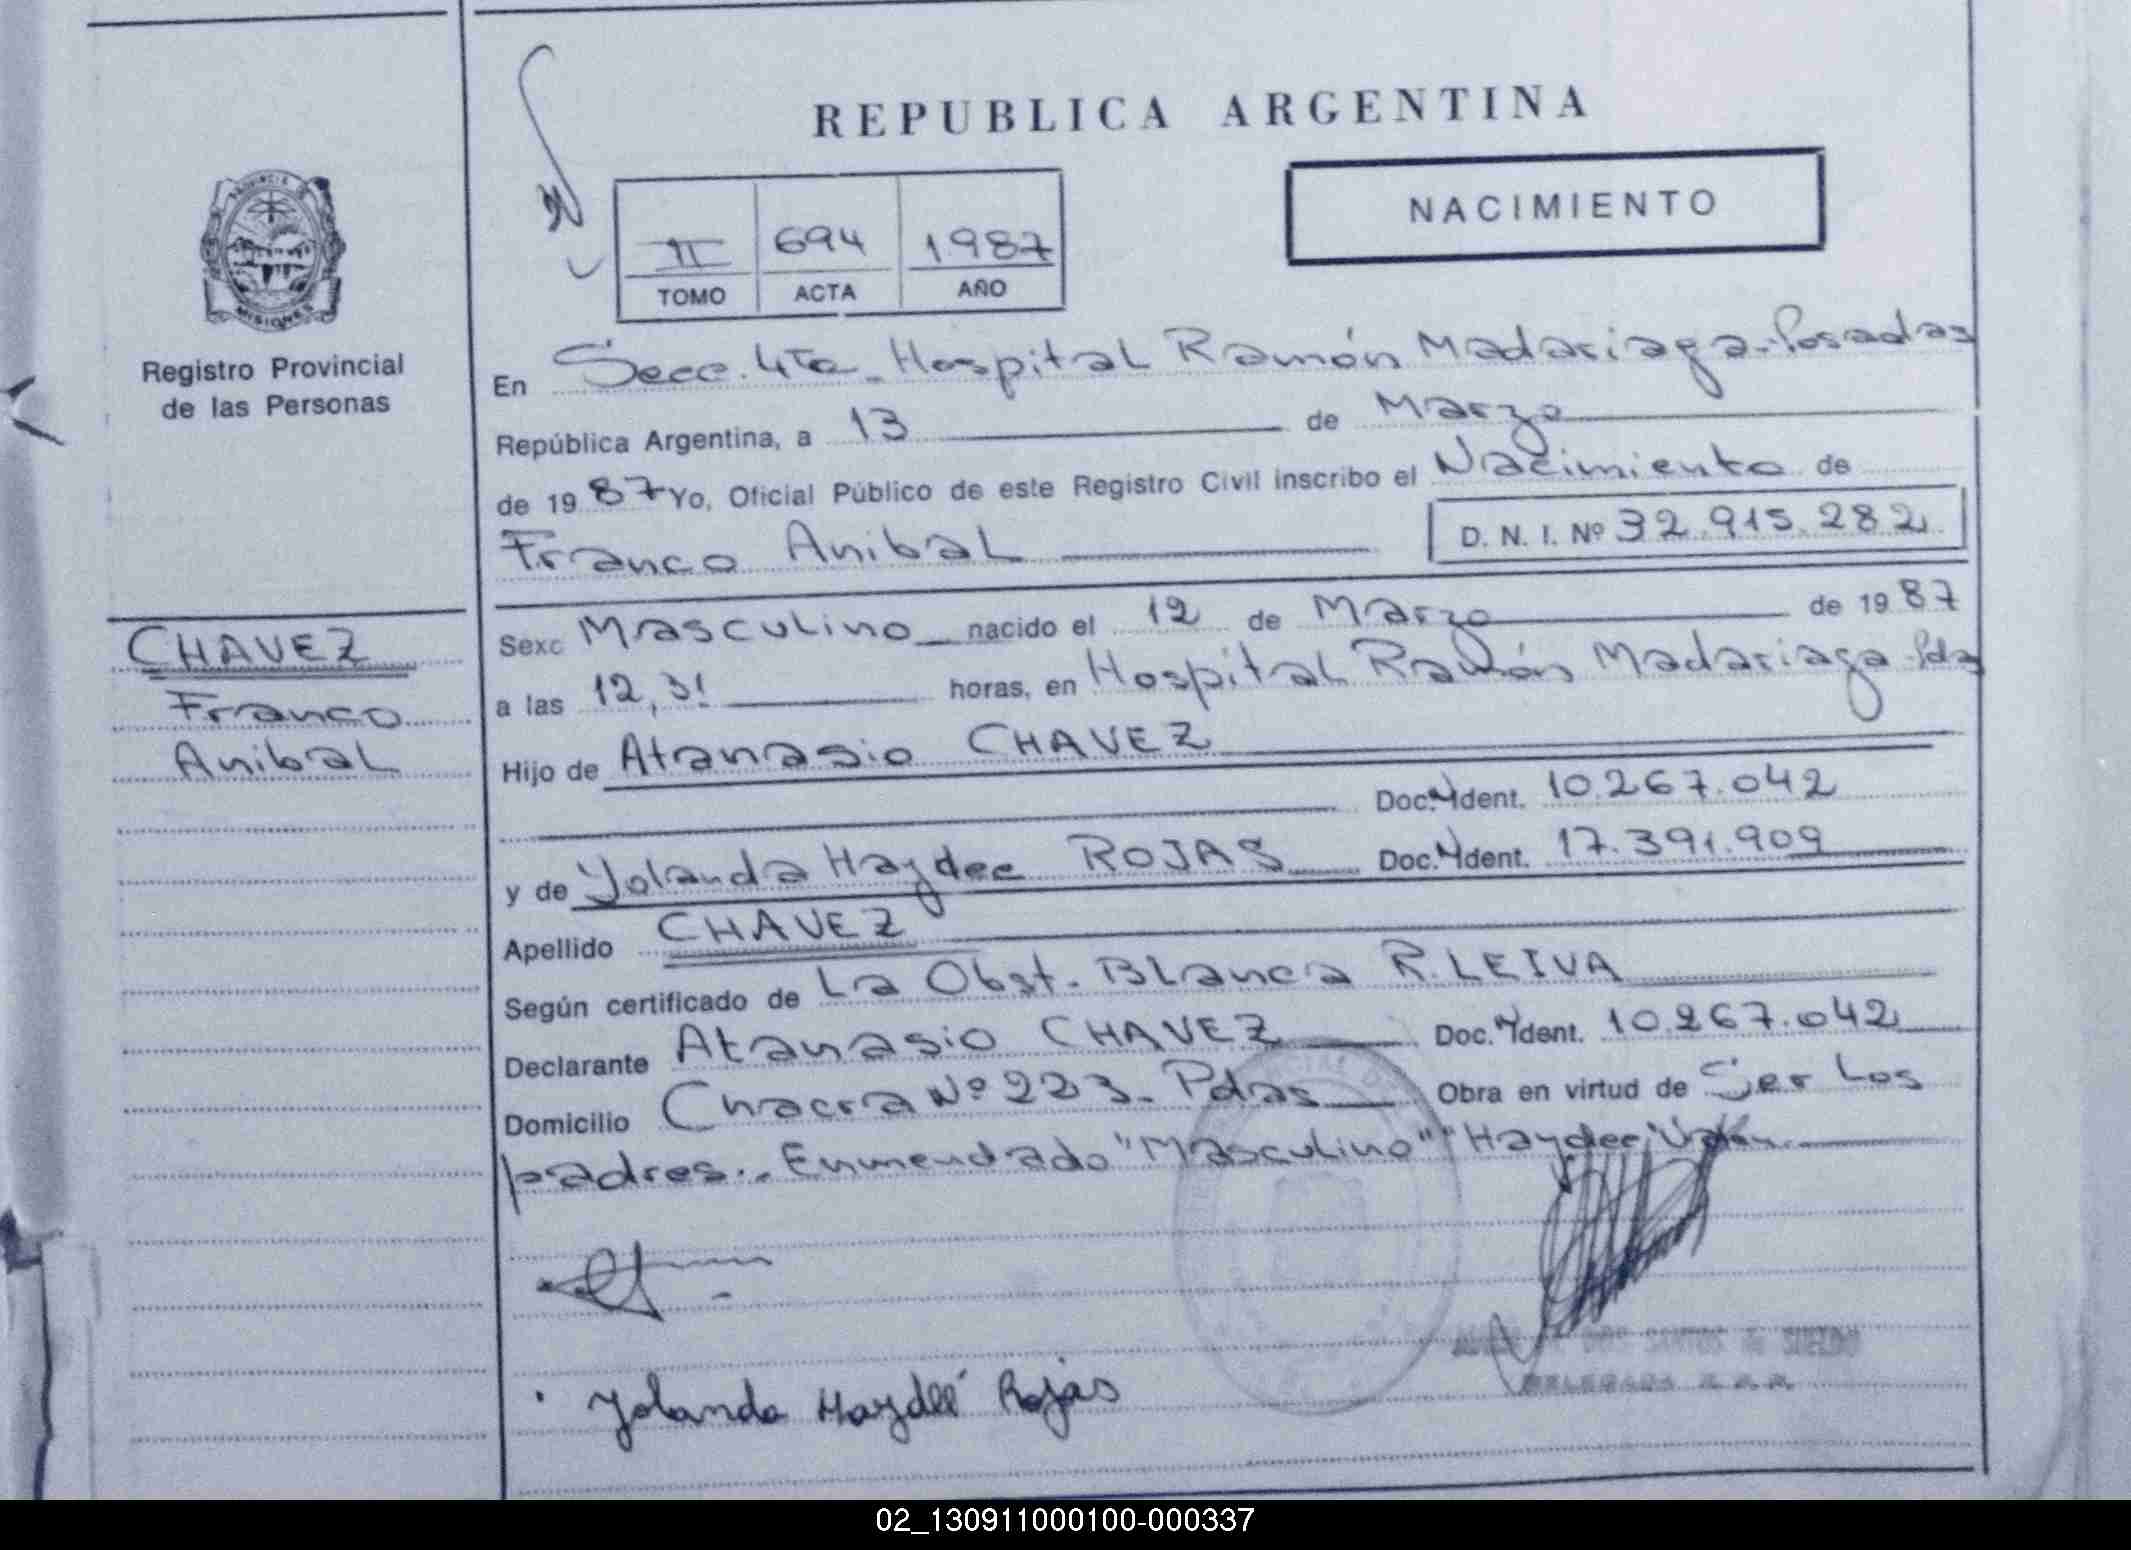 REPUBLICA ARGENTINA
NACIMIENTO
II 694 1987
TOMO ACTA AÑO
PROVINCIA DE
MISIONES
Registro Provincial
de las Personas
En Secc. 4ta - Hospital Ramón Madariaga - Posadas
República Argentina, a 13 de Marzo
de 1987 Yo, Oficial Público de este Registro Civil inscribo el Nacimiento de
Franco Anibal D. N. I. Nº 32.915.282
CHAVEZ
Franco
Anibal
Sexo Masculino nacido el 12 de Marzo de 1987
a las 12,31 horas, en Hospital Ramón Madariaga - Pdas
Hijo de Atanasio CHAVEZ
Doc. Ident. 10.267.042
y de Yolanda Haydee ROJAS Doc. Ident. 17.391.909
Apellido CHAVEZ
Según certificado de La Obst. Blanca R. LEIVA
Declarante Atanasio CHAVEZ Doc. Ident. 10.267.042
Domicilio Chacra Nº 223 - Pdas Obra en virtud de Ser los
padres.- Enmendado "Masculino" "Haydee" Valen
Yolanda Haydeé Rojas
DOS SANTOS de
DELEGADA R. P. P.
02_130911000100-000337